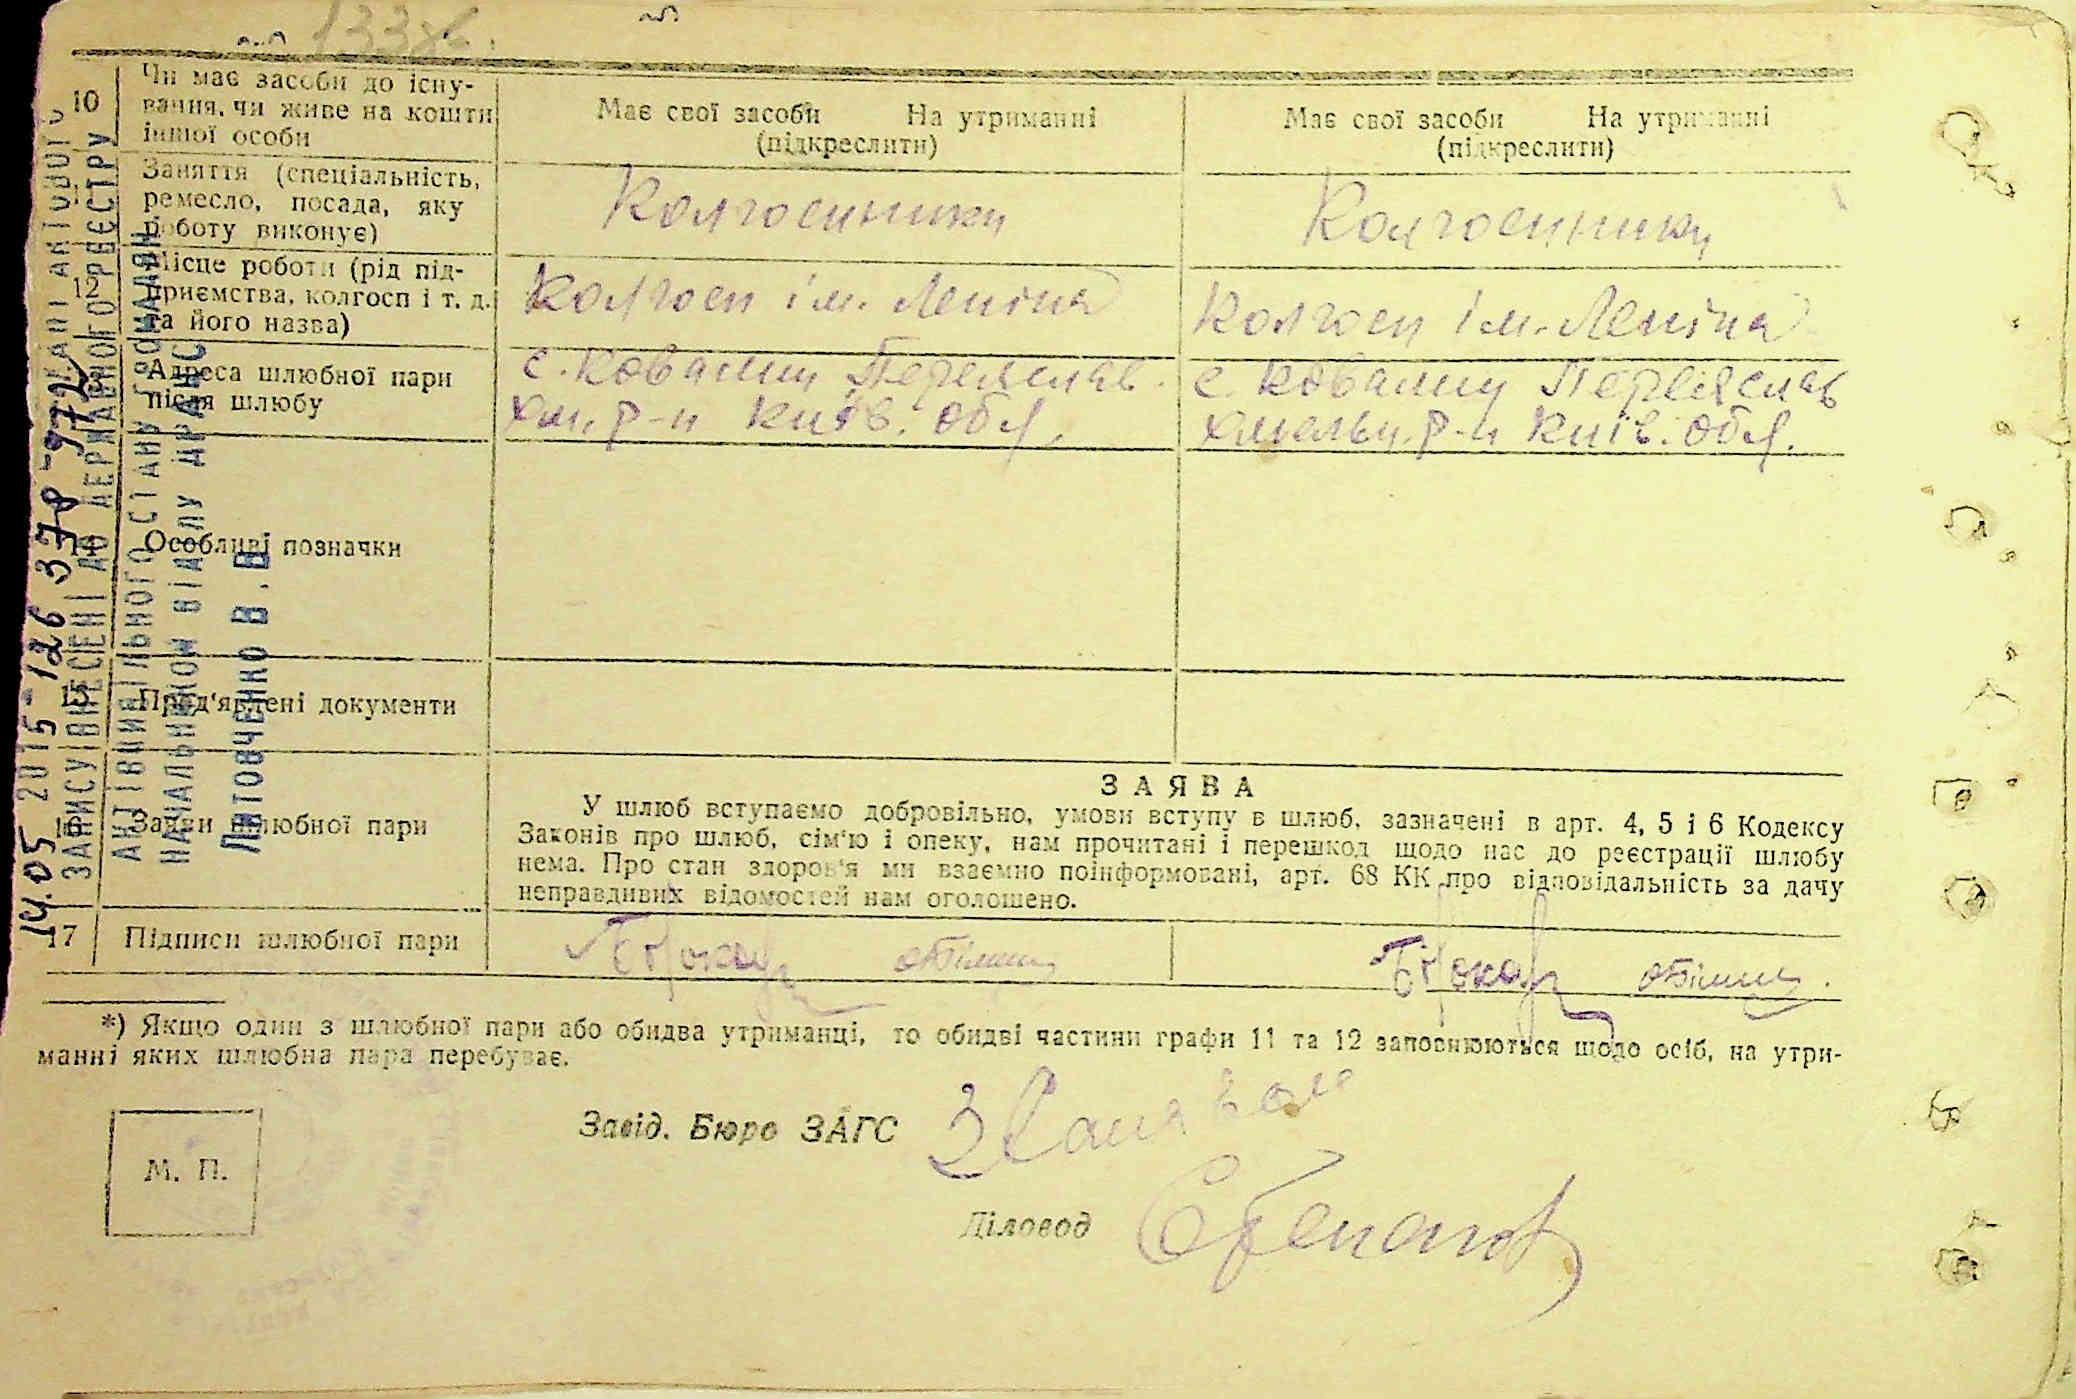 10 Чи має засоби до існу-
вання, чи живе на кошти
іншої особи
Має свої засоби На утриманні
(підкреслити)
Має свої засоби На утриманні
(підкреслити)
Заняття (спеціальність,
ремесло, посада, яку
роботу виконує)
Колгоспники
Колгоспники
12 Місце роботи (рід під-
приємства, колгосп і т. д.
та його назва)
Колгосп ім. Леніна
Колгосп ім. Леніна
Адреса шлюбної пари
після шлюбу
с. Ковалин Переяслав.
хм. р-н Київ. обл.
с. Ковалин Переяслав
хмельн. р-н Київ. обл.
14 Особливі позначки
15 Пред'явлені документи
16 Заяви шлюбної пари
ЗАЯВА
У шлюб вступаємо добровільно, умови вступу в шлюб, зазначені в арт. 4, 5 і 6 Кодексу
Законів про шлюб, сім'ю і опеку, нам прочитані і перешкод щодо нас до реєстрації шлюбу
нема. Про стан здоров'я ми взаємно поінформовані, арт. 68 КК про відповідальність за дачу
неправдивих відомостей нам оголошено.
17 Підписи шлюбної пари
*) Якщо один з шлюбної пари або обидва утриманці, то обидві частини графи 11 та 12 заповнюються щодо осіб, на утри-
манні яких шлюбна пара перебуває.
Завід. Бюро ЗАГС
М. П.
Діловод
14.05 2015 126 378 972
ЗАПИСУ ВНЕСЕНІ ДО ДЕРЖАВНОГО РЕЄСТРУ
АКТІВ ЦИВІЛЬНОГО СТАНУ ГРОМАДЯН
НАЧАЛЬНИКОМ ВІДДІЛУ ДРАЦС
Литовченко В.В